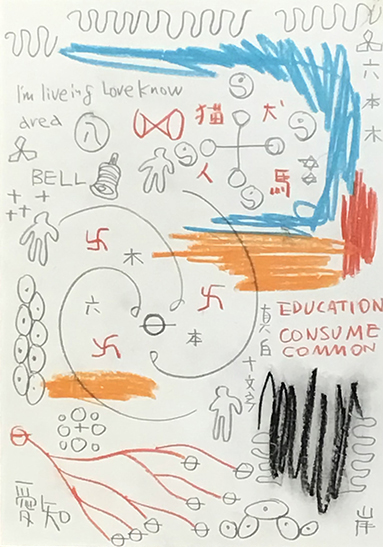 六本木
I'm liveing Loveknow
area
八
猫 犬
人 馬
BELL
卍 木
六 卍
本
卍
EDUCATION
CONSUME
COMMON
十文字
愛知
岸